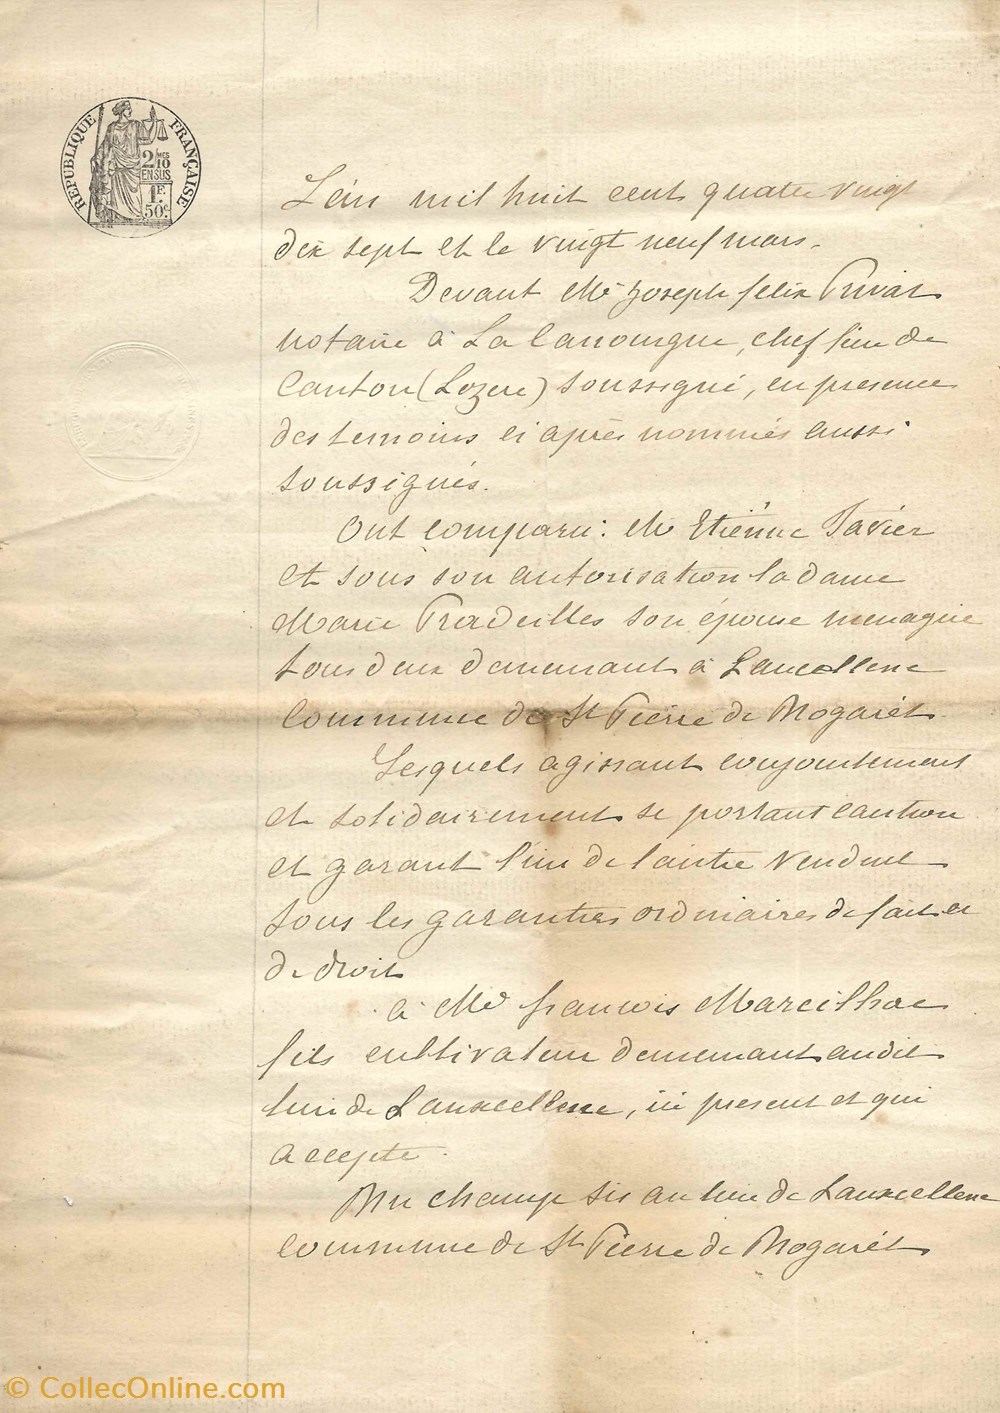 RÉPUBLIQUE FRANÇAISE
2/10 MES
EN SUS
1F.
50c.
L'an mil huit cent quatre vingt
dix sept et le vingt neuf mars.
Devant Me Joseph felix Privat
notaire à La Canourgue, chef lieu de
Canton (Lozère) soussigné, en presence
des temoins ci après nommés aussi
soussignés.
Ont comparu: Mr Etienne Tavier
et sous son autorisation la dame
Marie Pradeilles son épouse menagère
tous deux demeurant à Lauxellene
Commune de St Pierre de Nogaret.
Lesquels agissant conjointement
et solidairement se portant caution
et garant l'un de l'autre vendent
sous les garanties ordinaires de fait et
de droit
à Mr françois Marcilhac
fils cultivateur demeurant audit
lieu de Lauxcellene, ici present et qui
accepte.
Un champ sis au lieu de Lauxcellene
commune de St Pierre de Nogaret
© CollecOnline.com